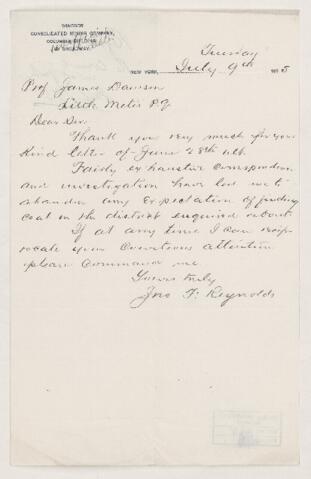 WINDSOR
CONSOLIDATED MINING COMPANY,
COLUMBIA BUILDING
BROADWAY
Tuesday
NEW YORK, July 9th 1895
Prof James Dawson
Little Metis P.Q
Dear Sir
Thank you very much for your
kind letter of June 28th ult.
Fairly exhaustive correspondence
and investigation have led me to
abandon any expectation of finding
coal in the district enquired about.
If at any time I can recip-
rocate your courteous attention
please command me.
Yours truly
Jno F. Reynolds